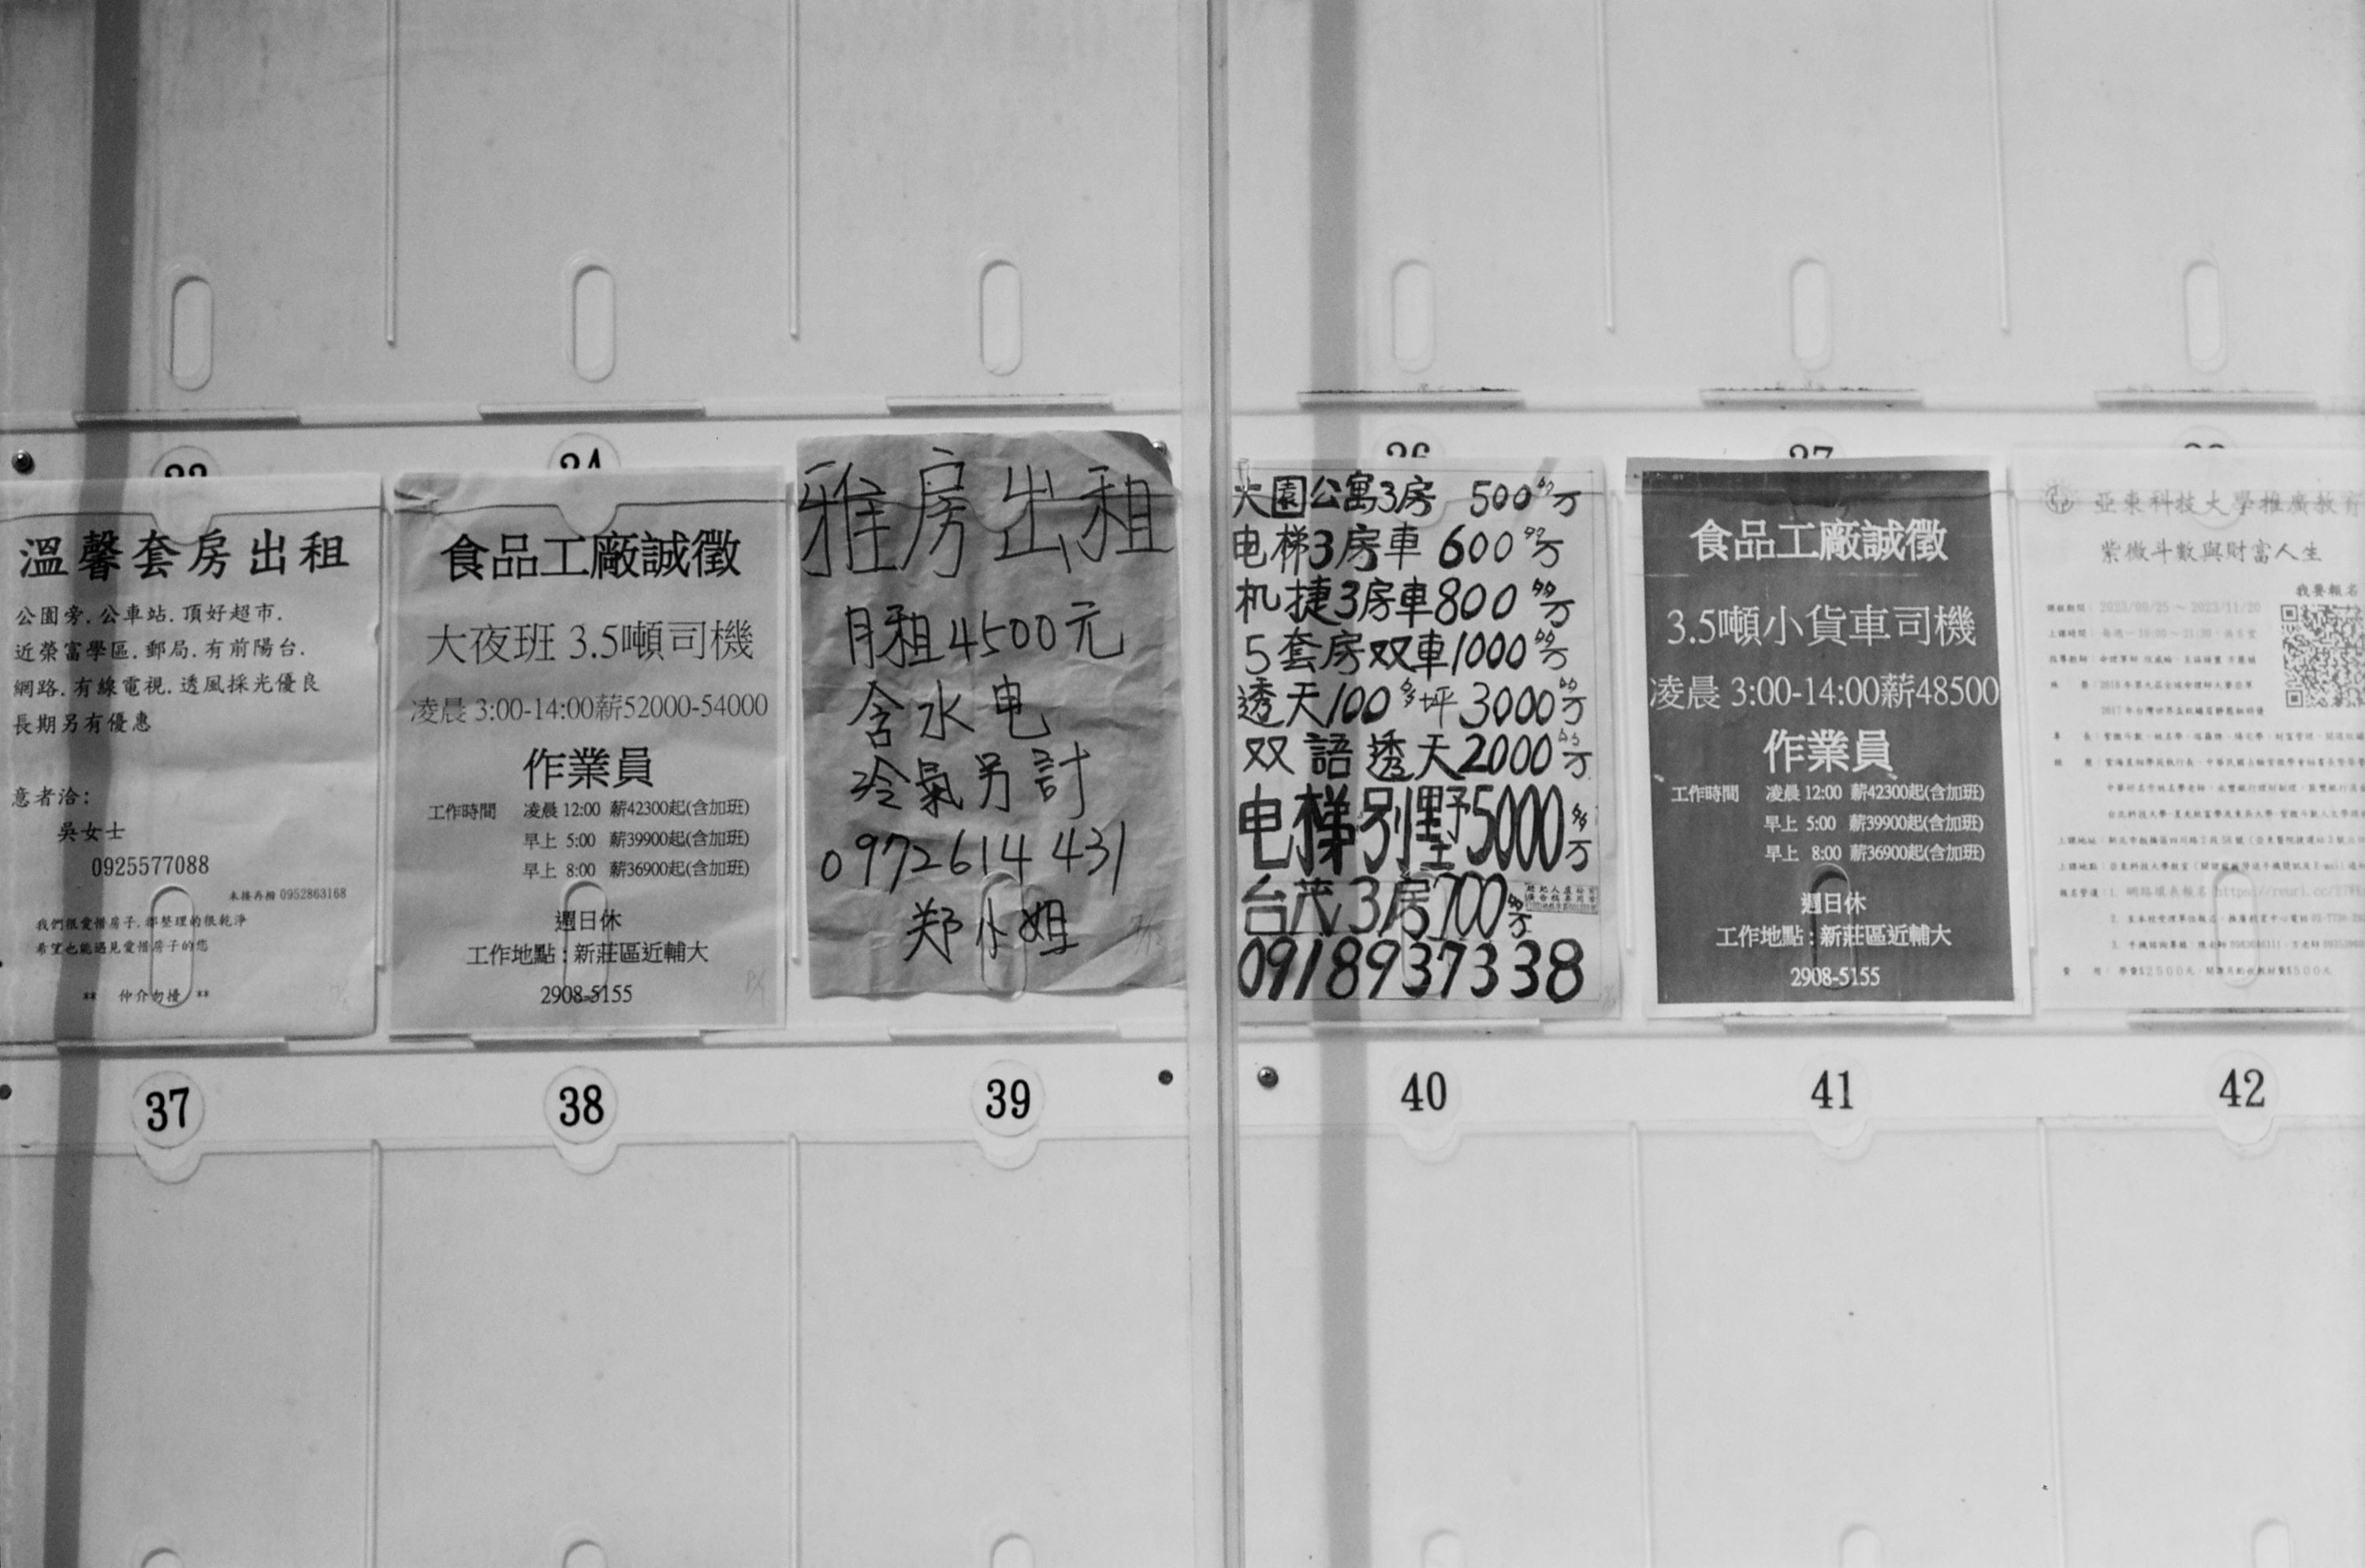 溫馨套房出租
公園旁.公車站.頂好超市.
近榮富學區.郵局.有前陽台.
網路.有線電視.透風採光優良
長期另有優惠
意者洽:
吳女士
0925577088
未接再撥 0952863168
我們很愛惜房子.都整理的很乾淨
希望也能遇見愛惜房子的您
** 仲介勿擾 **
食品工廠誠徵
大夜班 3.5噸司機
凌晨 3:00-14:00薪52000-54000
作業員
工作時間 凌晨 12:00 薪42300起(含加班)
早上 5:00 薪39900起(含加班)
早上 8:00 薪36900起(含加班)
週日休
工作地點 : 新莊區近輔大
2908-5155
雅房出租
月租4500元
含水电
冷氣另計
0972614431
郑小姐
大園公寓3房 500多万
电梯3房車 600多万
机捷3房車800多万
5套房双車1000多万
透天100多坪3000多万
双語透天2000多万
电梯别墅5000多万
台茂3房700多万
0918937338
食品工廠誠徵
3.5噸小貨車司機
凌晨 3:00-14:00薪48500
作業員
工作時間 凌晨 12:00 薪42300起(含加班)
早上 5:00 薪39900起(含加班)
早上 8:00 薪36900起(含加班)
週日休
工作地點 : 新莊區近輔大
2908-5155
亞東科技大學推廣教育
紫微斗數與財富人生
我要報名
課程期間：2023/09/25 ~ 2023/11/20
37
38
39
40
41
42